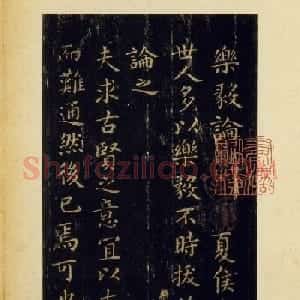 樂毅論 夏侯
世人多以樂毅不時拔
論之
夫求古賢之意宜以大
而難通然後已焉可
Shufaziliao.com